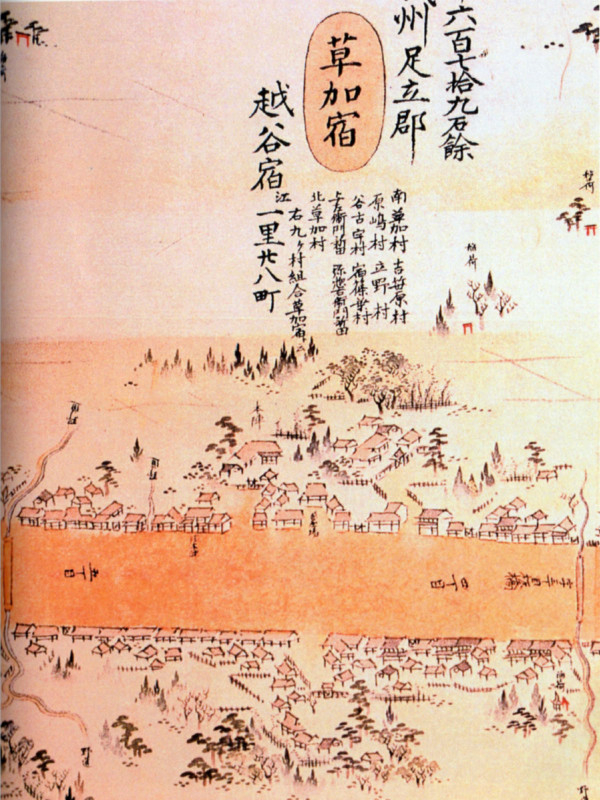 六百七拾九石餘
州足立郡
草加宿
南草加村 吉笹原村
原嶋村 立野村
谷古宇村 宿篠葉村
与左衛門新田 弥惣右衛門新田
北草加村
右九ヶ村組合草加宿ニ
越谷宿江一里廿八町
稲荷
稲荷
本陣
四丁目
五丁目
野道